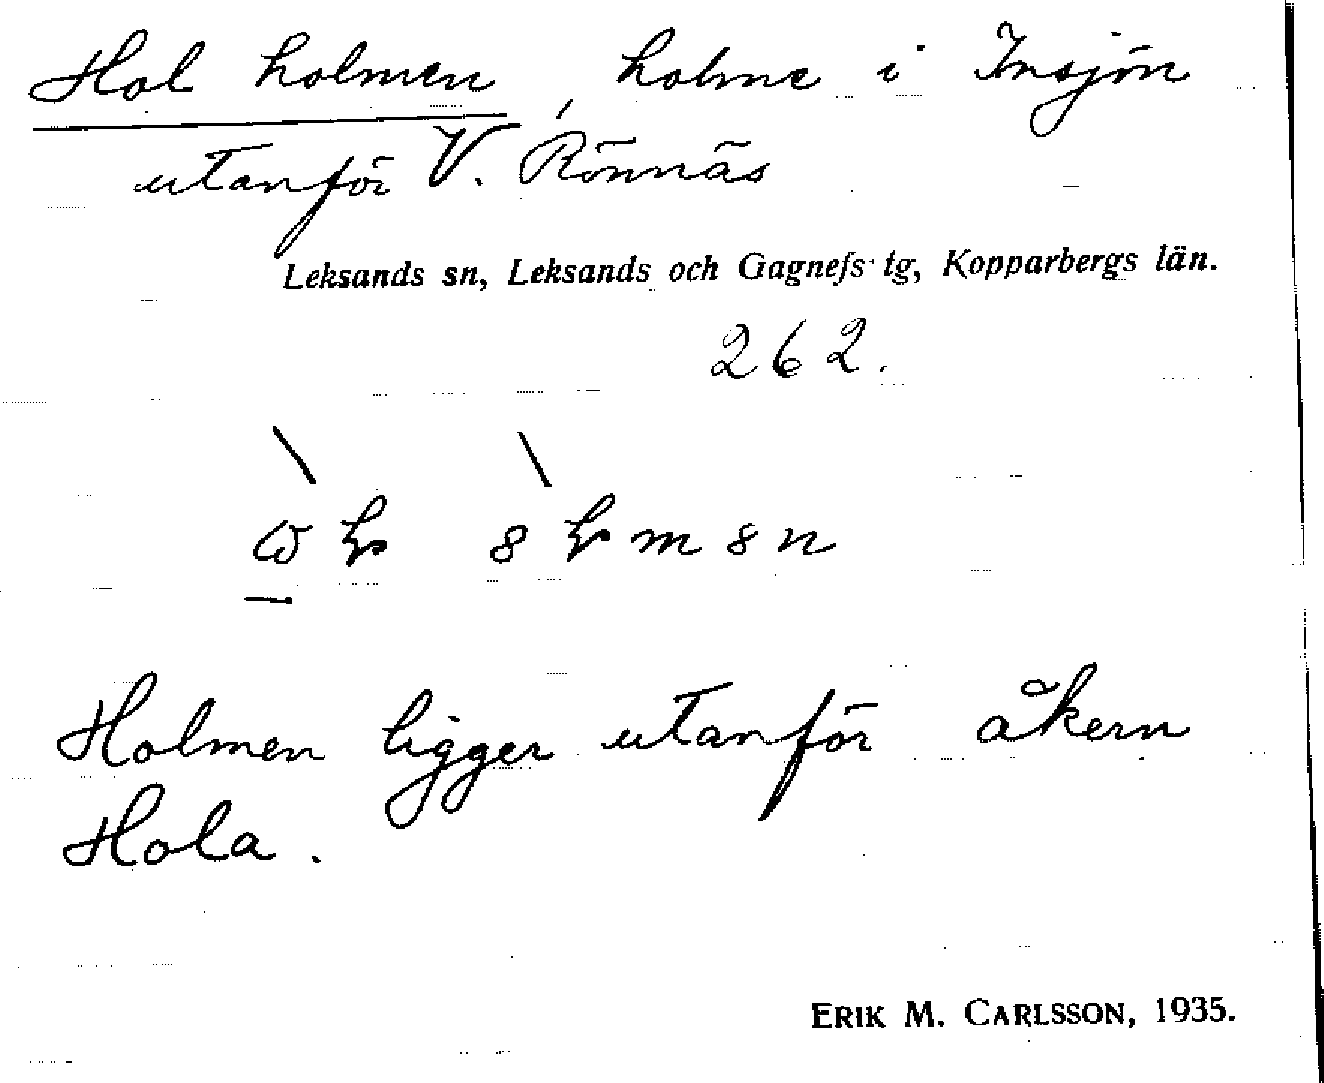 Hol holmen, holme i Insjön
utanför V. Rönnäs
Leksands sn, Leksands och Gagnefs tg, Kopparbergs län.
262.
Holmen ligger utanför åkern
Hola.
ERIK M. CARLSSON, 1935.